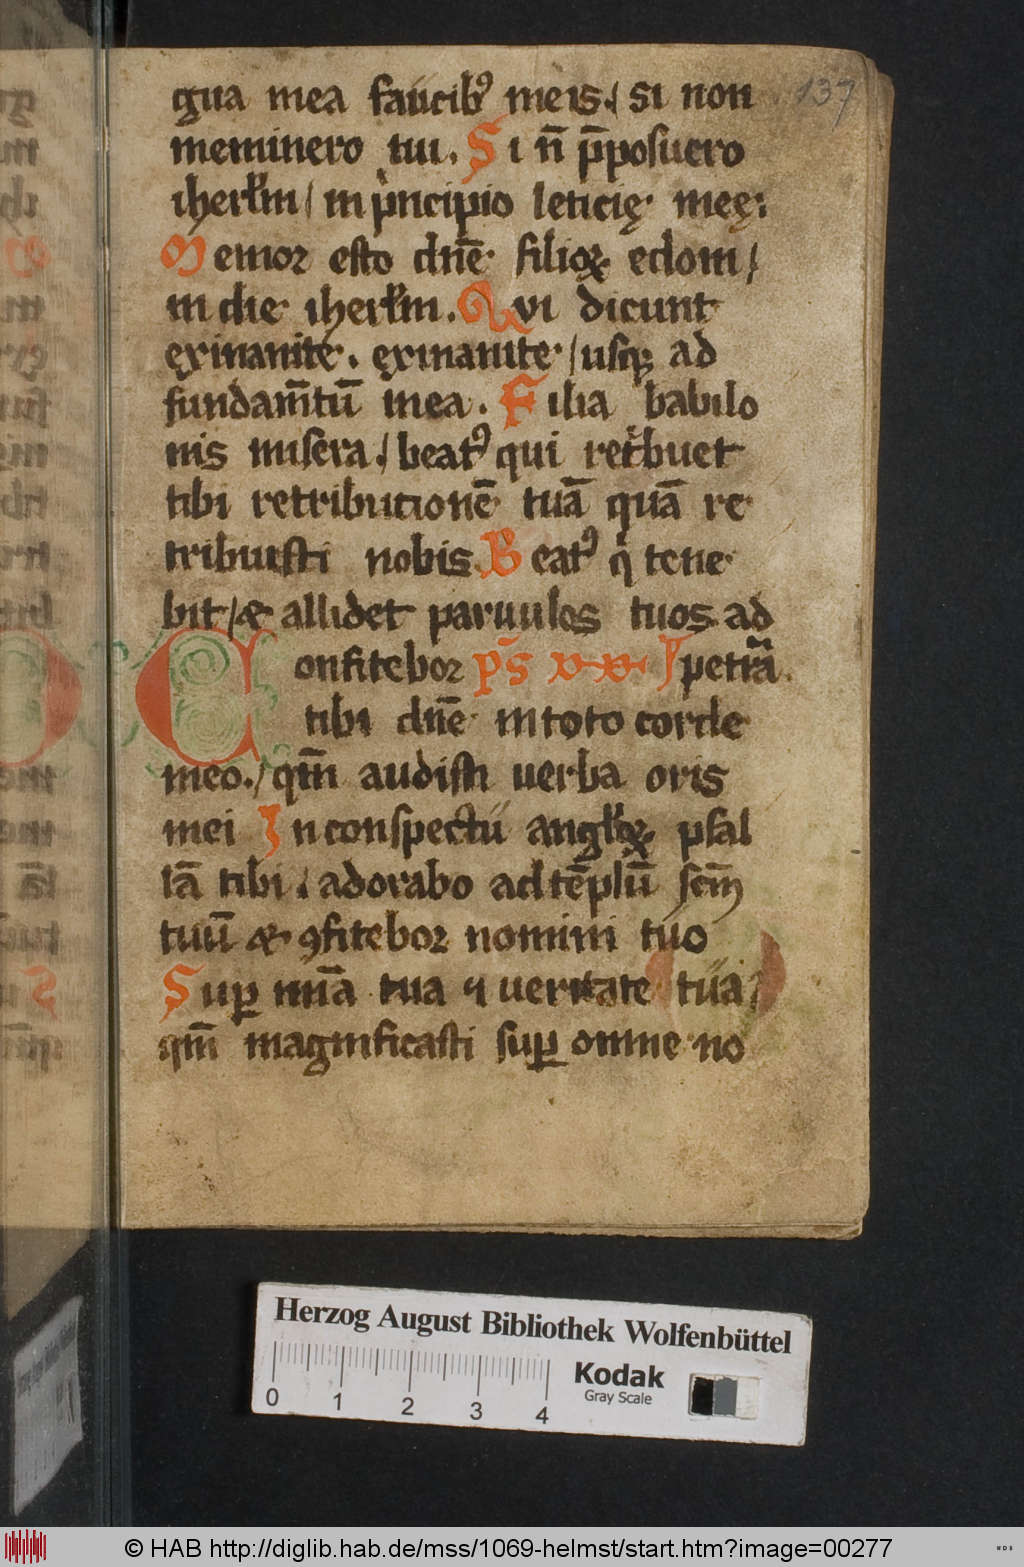 gua mea faucibꝰ meis./ si non
137
meminero tui. Si n̄ p̄posuero
iherl̄m / in pͥncipio leticię· meę:
Memor esto dn̄e· filioꝝ edom /
in die· iherl̄m. Qvi dicunt
ęxinanite. ęxinanite· / usqꝫ ad
fundam̄tū mea. Filia babilo
nis misera./ beatꝰ qui retͥbuet
tibi retributionē· tuā quā re
tribuisti nobis. Beatꝰ qͥ tene
bit / & allidet paruulos tuos ad
Confitebor p̄s petrā.
tibi dn̄e· in toto corde
meo./ qm̄ audisti uerba oris
mei In conspectu angl̄oꝝ psal
lā tibi./ adorabo ad tēplū sc̄m
tuū & ꝯfitebor nomini tuo
Suꝑ mīa tua ⁊ ueritate tua /
qm̄ magnificasti suꝑ omne no
Herzog August Bibliothek Wolfenbüttel
Kodak
Gray Scale
0 1 2 3 4
© HAB http://diglib.hab.de/mss/1069-helmst/start.htm?image=00277